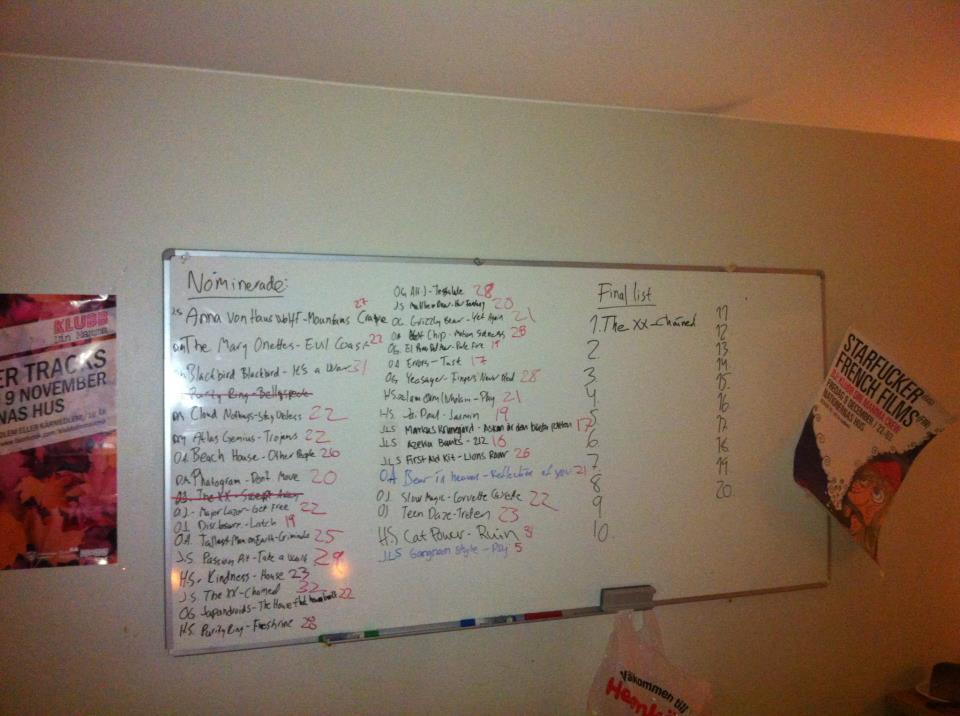 KLUBB
Din Mamma
ER TRACKS
9 NOVEMBER
NAS HUS
Nominerade:
J.S Anna Von Hausswolff - Mountains Crave 27
The Mary Onettes - Evil Coast 22
Blackbird Blackbird - It's a War 31
Purity Ring - Bellyspeak
Cloud Nothings - Stay Useless 22
Atlas Genius - Trojans 22
O.A. Beach House - Other People 26
O.A. Photogram - Don't Move 20
The XX - Swept Away
O.J. - Major Lazer - Get Free 22
O.J. Disclosure - Latch 19
O.A. Tallest Man on Earth - 25
J.S. Passion Pit - Take a Walk 29
H.S. Kindness - House 23
J.S. The XX - Chained 32
OG Japandroids - The House That Heaven Built 22
H.S. Purity Ring - Fineshrine 28
OG Alt-J - Tessellate 28
J.S Matthew Dear - Her Fantasy 20
OG Grizzly Bear - Yet Again 21
O.A Hot Chip - Motion Sickness 28
OG. El Perro Del Mar - 19
O.A Errors - Tusk 17
OG Yeasayer - Fingers Never Bled 28
H.S. 21
H.S. Jai Paul - Jasmin 19
JLS Markus Krunegård - Askan är den bästa jorden 17
JLS Azealia Banks - 212 16
JLS First Aid Kit - Lions Roar 26
O.A Bear in heaven - Reflection of you 21
O.J. Slow Magic - Corvette Cassette 22
OJ Teen Daze - 23
H.S Cat Power - Ruin 31
JLS Gangnam Style - Psy 5
Final list
1. The XX - Chained
2.
3.
4.
5
6
7.
8
9
10.
11
12
13
14.
15.
16
17.
18
19
20.
STARFUCKER
FRENCH FILMS
Välkommen till
Hemkö